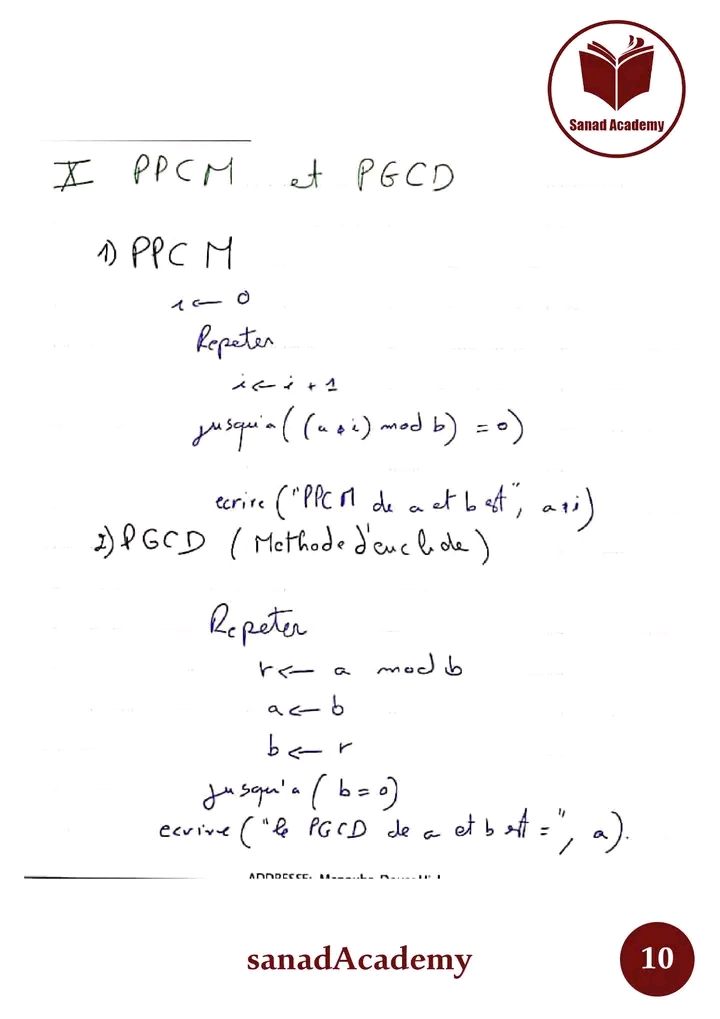 Sanad Academy
X PPCM et PGCD
1) PPCM
i ← 0
Repeter
i ← i + 1
jusqu'a ((a * i) mod b) = 0)
ecrire ("PPCM de a et b est", a*i)
2) PGCD (Methode d'euclide)
Repeter
r ← a mod b
a ← b
b ← r
jusqu'a (b = 0)
ecrire ("le PGCD de a et b est =", a).
ADDRESSE:
sanadAcademy
10